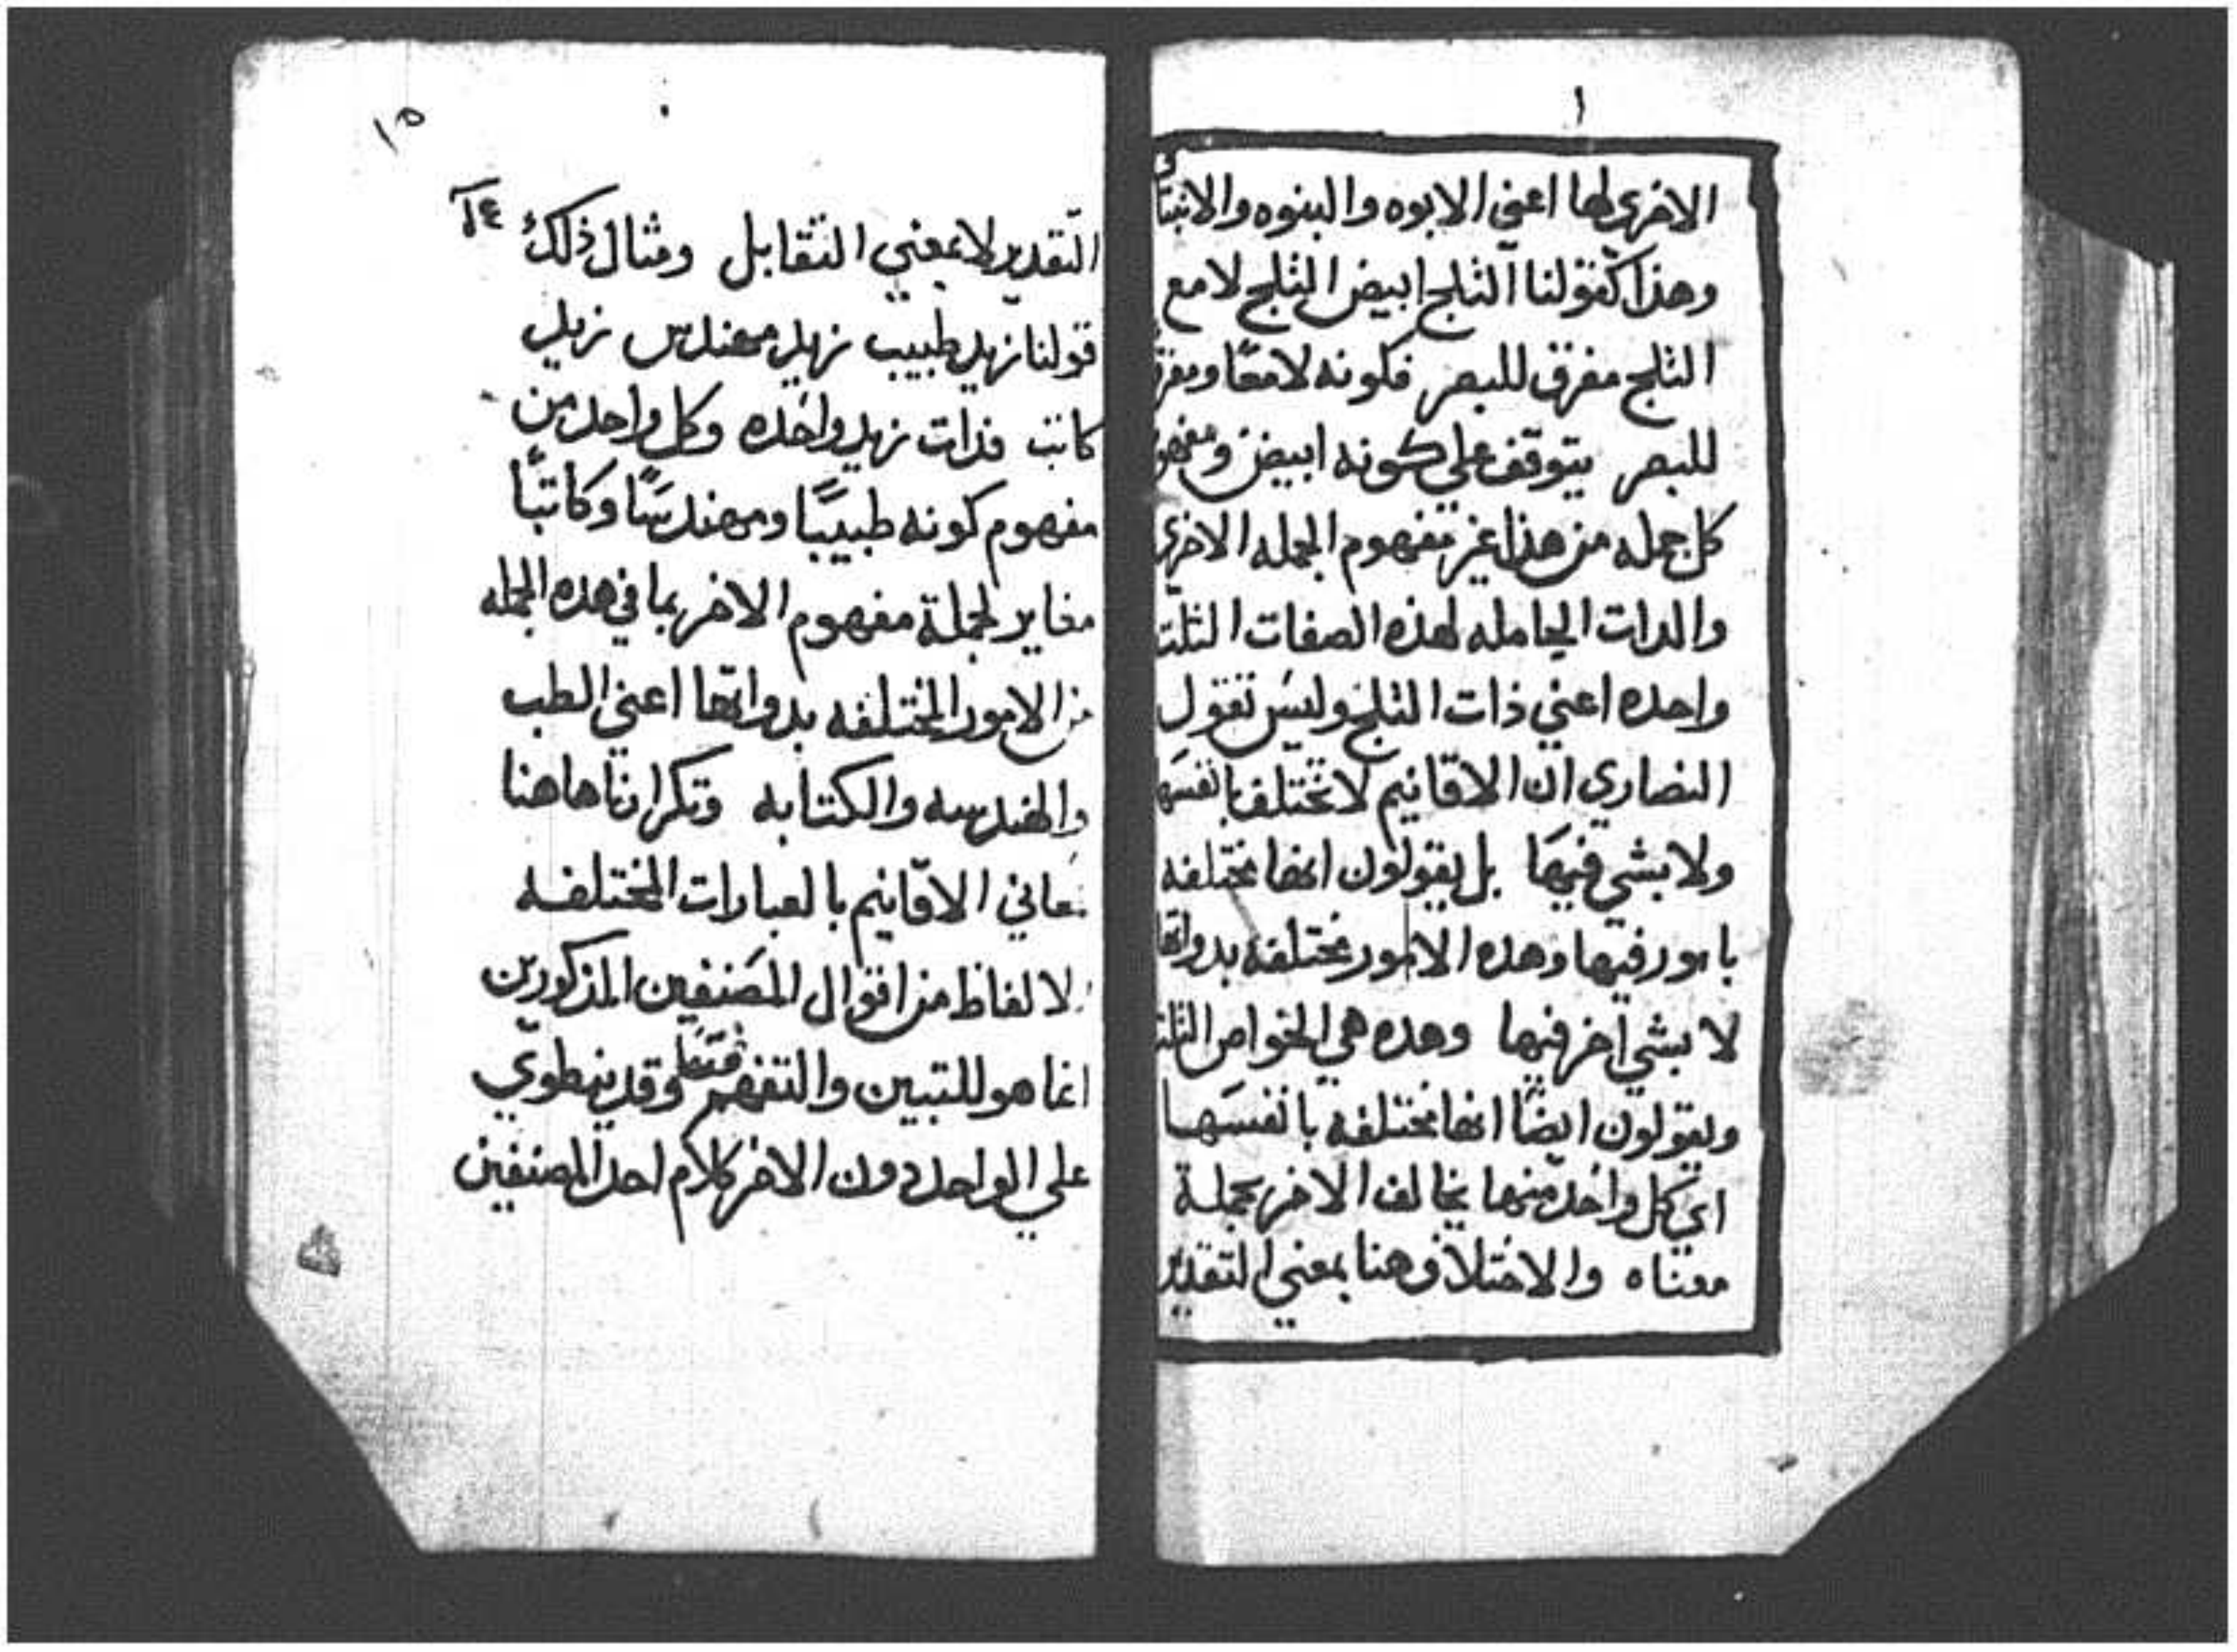 ١
الاخري لها اعني الابوه والبنوه والانبثا
وهذا كقولنا الثلج ابيض الثلج لامع
الثلج مفرق للبصر فكونه لامعًا ومفرق
للبصر يتوقف علي كونه ابيض ومفهوم
كل جمله من هذا غير مفهوم الجمله الاخري
والدات الحامله لهذه الصفات الثلت
واحده اعني ذات الثلج وليس تقول
النصاري ان الاقانيم لا تختلف بانفسها
ولا بشي فيها بل يقولون انها مختلفه
بامور فيها وهده الامور مختلفه بدواتها
لا بشي آخر فيها وهده هي الخواص الثلث
ويقولون ايضًا انها مختلفه بانفسها
اي كل واحد منها يخالف الاخر بجملة
معناه والاختلاف هنا بمعني التقدير
١٥
١٤
التقدير لا بمعني التقابل ومثال ذلك
قولنا زيد طبيب زيد مهندس زيد
كاتب فدات زيد واحده وكل واحد من
مفهوم كونه طبيبًا ومهندسًا وكاتبًا
مغاير لجملة مفهوم الاخر بما في هده الجمله
من الامور المختلفه بدواتها اعني الطب
والهندسه والكتابه وتكرارنا هاهنا
معاني الاقانيم بالعبارات المختلفه
الالفاظ من اقوال المصنفين المذكورين
انما هو للتبين والتفهم فقط وقد ينطوي
علي الواحد دون الاخر كلام احد المصنفين